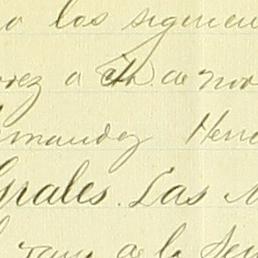 a los siguien
rez a Ch. de nov
ernandez Herr
grales. Las
a la Se